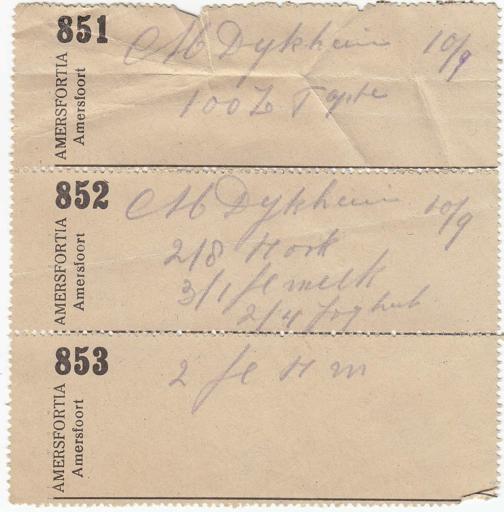 851
AMERSFORTIA
Amersfoort
CM Dykhuis 10/9
100
852
AMERSFORTIA
Amersfoort
CM Dykhuis 10/9
2/8
3/1 fl melk
2/4
853
AMERSFORTIA
Amersfoort
2 fl H m